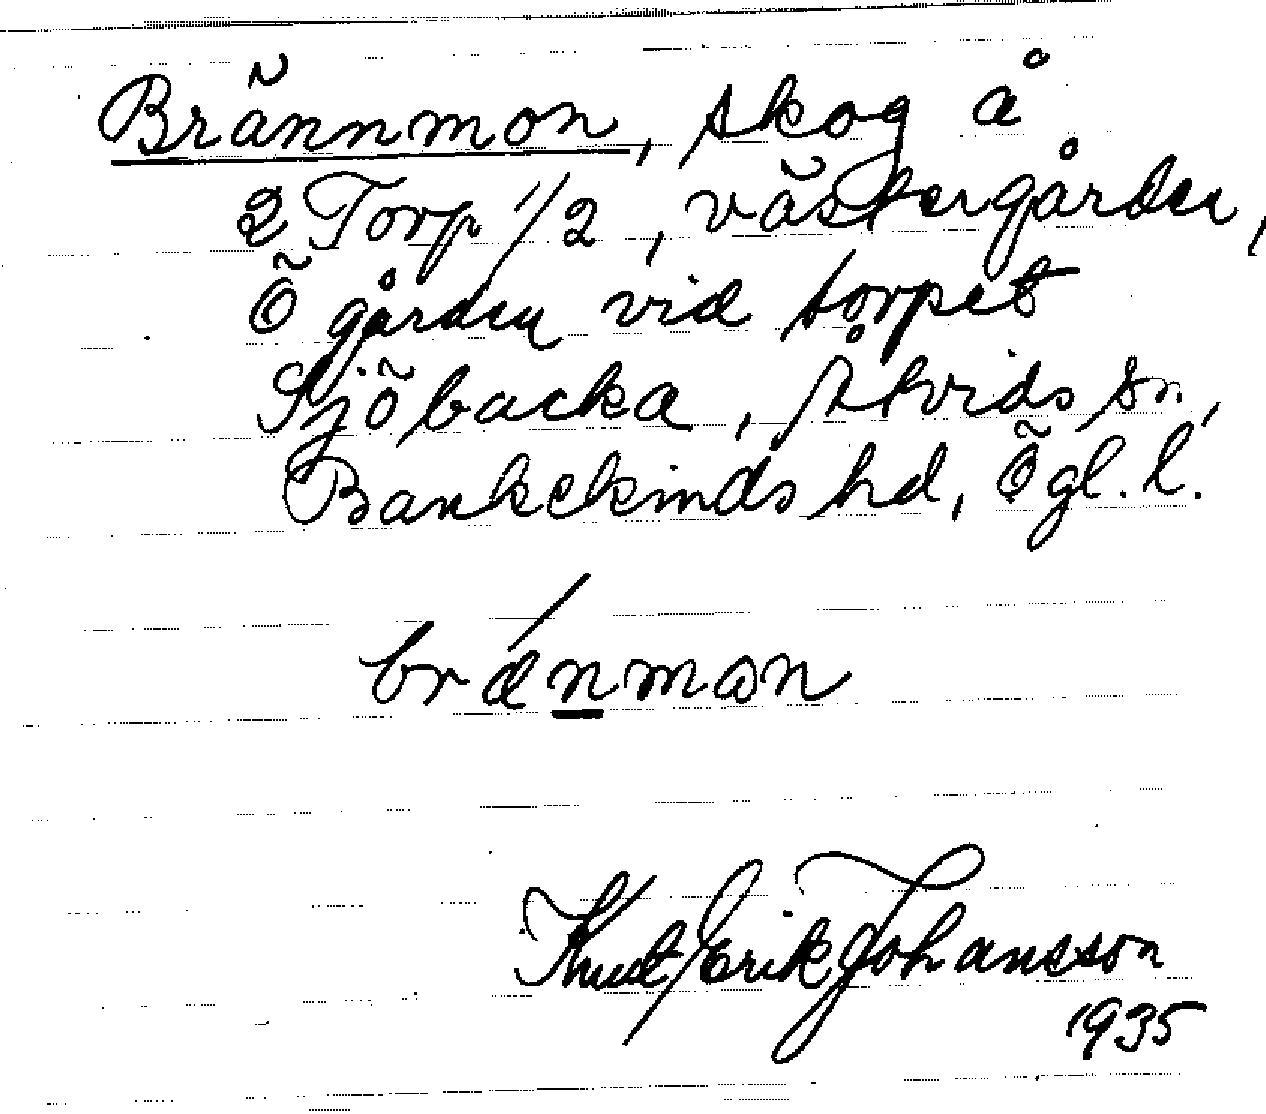 Brännmon, skog å
2 Torp 1/2, västergården,
Ögården vid torpet
Sjöbacka, Åtvids sn,
Bankekinds hd, Ögl. l.
brænmɷn
Knut Erik Johansson
1935